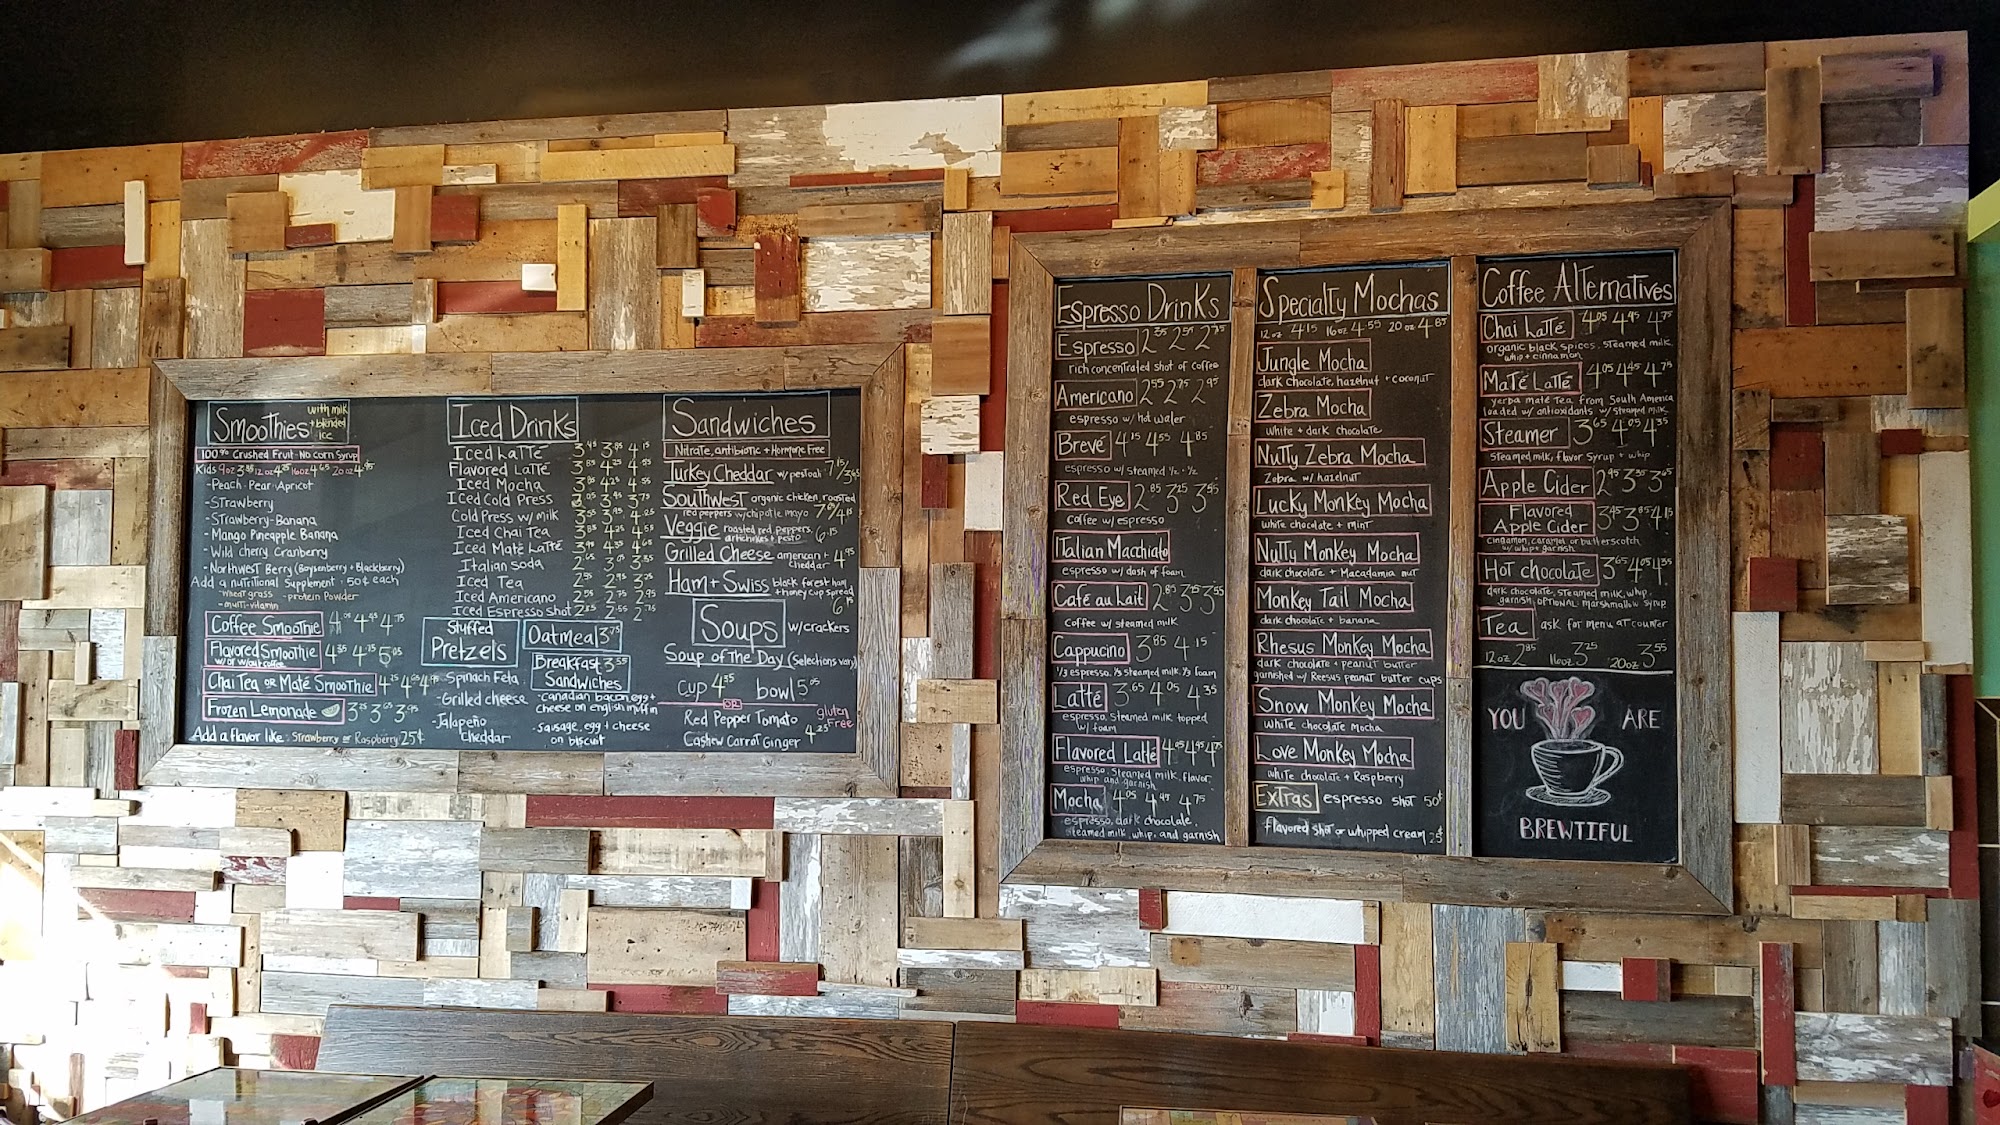 Smoothies with milk + blended ice
100% Crushed Fruit - No Corn Syrup
Kids 9oz 3.85 12oz 4.35 16oz 4.65 20oz 4.95
- Peach - Pear - Apricot
- Strawberry
- Strawberry - Banana
- Mango Pineapple Banana
- Wild cherry Cranberry
- Northwest Berry (Boysenberry + Blackberry)
Add a nutritional Supplement : 50¢ each
- wheat grass - protein Powder
- multi-vitamin
Coffee Smoothie 4.05 4.45 4.75
Flavored Smoothie 4.35 4.75 5.05
w/ or w/out coffee
Chai Tea or Maté Smoothie 4.25 4.65 4.95
Frozen Lemonade 3.25 3.65 3.95
Add a flavor like: Strawberry or Raspberry 25¢
Iced Drinks
Iced Latté 3.45 3.85 4.15
Flavored Latté 3.85 4.25 4.55
Iced Mocha 3.85 4.25 4.55
Iced Cold Press 3.95 3.75
Cold Press w/ milk 3.55 3.95 4.25
Iced Chai Tea 3.85 4.25 4.55
Iced Maté Latté 3.95 4.35 4.65
Italian Soda 2.65 3.05 3.35
Iced Tea 2.55 2.95 3.25
Iced Americano 2.55 2.75 2.95
Iced Espresso Shot 2.35 2.55 2.75
Stuffed Pretzels
- Spinach Feta
- Grilled cheese
- Jalapeño
cheddar
Oatmeal 3.75
Breakfast 3.35
Sandwiches
- Canadian bacon, egg +
cheese on english muffin
- Sausage, egg + cheese
on biscuit
Sandwiches
Nitrate, antibiotic + Hormone Free
Turkey Cheddar w/ pesto aioli 7.15/3.65
Southwest organic chicken, roasted
red peppers w/ chipotle mayo
Veggie roasted red peppers,
artichokes + pesto 6.15
Grilled Cheese american +
cheddar 4.95
Ham + Swiss black forest ham
+ honey cup spread
6.15
Soups w/ crackers
Soup of The Day (selections vary)
Cup 4.35 bowl 5.05
OR
Red Pepper Tomato gluten Free
Cashew Carrot Ginger 4.25
Espresso Drinks
Espresso 2.35 2.55 2.75
rich concentrated shot of coffee
Americano 2.55 2.75 2.95
espresso w/ hot water
Brevé 4.15 4.55 4.85
espresso w/ steamed ½ + ½
Red Eye 2.85 3.25 3.55
coffee w/ espresso
Italian Macchiato
espresso w/ dash of foam
Café au Lait 2.85 3.25 3.55
Coffee w/ steamed milk
Cappucino 3.85 4.15
⅓ espresso, ⅓ steamed milk, ⅓ foam
Latté 3.65 4.05 4.35
espresso, steamed milk topped
w/ foam
Flavored Latté 4.05 4.45 4.75
espresso, steamed milk, flavor,
whip and garnish
Mocha 4.05 4.45 4.75
espresso, dark chocolate,
steamed milk, whip, and garnish
Specialty Mochas
12oz 4.15 16oz 4.55 20oz 4.85
Jungle Mocha
dark chocolate, hazelnut + coconut
Zebra Mocha
white + dark chocolate
Nutty Zebra Mocha
Zebra w/ hazelnut
Lucky Monkey Mocha
white chocolate + mint
Nutty Monkey Mocha
dark chocolate + Macadamia nut
Monkey Tail Mocha
dark chocolate + banana
Rhesus Monkey Mocha
dark chocolate + peanut butter
garnished w/ Reesus peanut butter cups
Snow Monkey Mocha
white chocolate Mocha
Love Monkey Mocha
white chocolate + Raspberry
Extras espresso shot 50¢
flavored shot or whipped cream 25¢
Coffee Alternatives
Chai Latté 4.05 4.45 4.75
organic black spices, steamed milk,
whip + cinnamon
Maté Latté 4.05 4.45 4.75
yerba maté tea from South America
loaded w/ antioxidants w/ steamed milk
Steamer 3.65 4.05 4.35
steamed milk, flavor syrup + whip
Apple Cider 2.95 3.35 3.65
Flavored
Apple Cider 3.45 3.85 4.15
cinnamon, caramel or butterscotch
w/ whip + garnish
Hot chocolate 3.65 4.05 4.35
dark chocolate, steamed milk, whip,
garnish, optional: marshmallow syrup
Tea ask for menu at counter
12oz 2.85 16oz 3.25 20oz 3.55
YOU ARE
BREWTIFUL